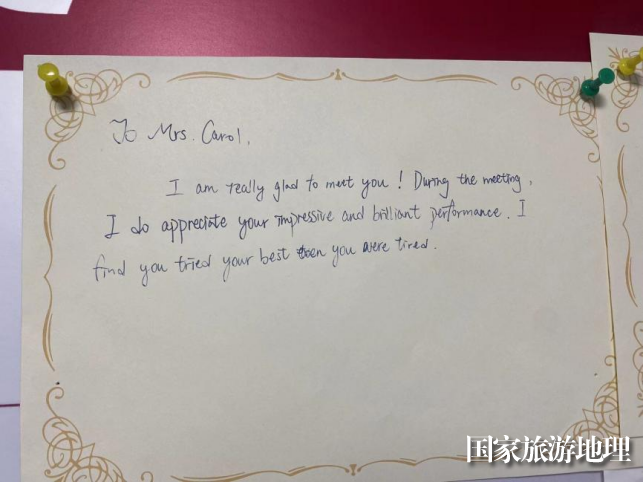 To Mrs. Carol,
I am really glad to meet you! During the meeting,
I do appreciate your impressive and brilliant performance. I
find you tried your best even you were tired.
国家旅游地理